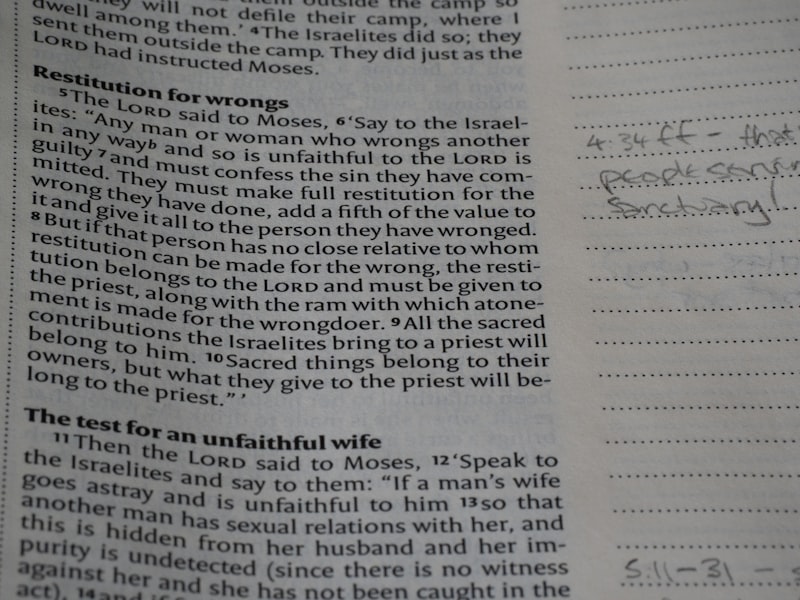 they will not defile their camp, where I
dwell among them.' ⁴The Israelites did so; they
sent them outside the camp. They did just as the
LORD had instructed Moses.
Restitution for wrongs
⁵The LORD said to Moses, ⁶'Say to the Israel-
ites: "Any man or woman who wrongs another
in any wayᵇ and so is unfaithful to the LORD is
guilty ⁷and must confess the sin they have com-
mitted. They must make full restitution for the
wrong they have done, add a fifth of the value to
it and give it all to the person they have wronged.
⁸But if that person has no close relative to whom
restitution can be made for the wrong, the resti-
tution belongs to the LORD and must be given to
the priest, along with the ram with which atone-
ment is made for the wrongdoer. ⁹All the sacred
contributions the Israelites bring to a priest will
belong to him. ¹⁰Sacred things belong to their
owners, but what they give to the priest will be-
long to the priest."'
The test for an unfaithful wife
¹¹Then the LORD said to Moses, ¹²'Speak to
the Israelites and say to them: "If a man's wife
goes astray and is unfaithful to him ¹³so that
another man has sexual relations with her, and
this is hidden from her husband and her im-
purity is undetected (since there is no witness
against her and she has not been caught in the
act), ¹⁴and
4.34ff - that
people
Sanctuary!
5:11-31 -